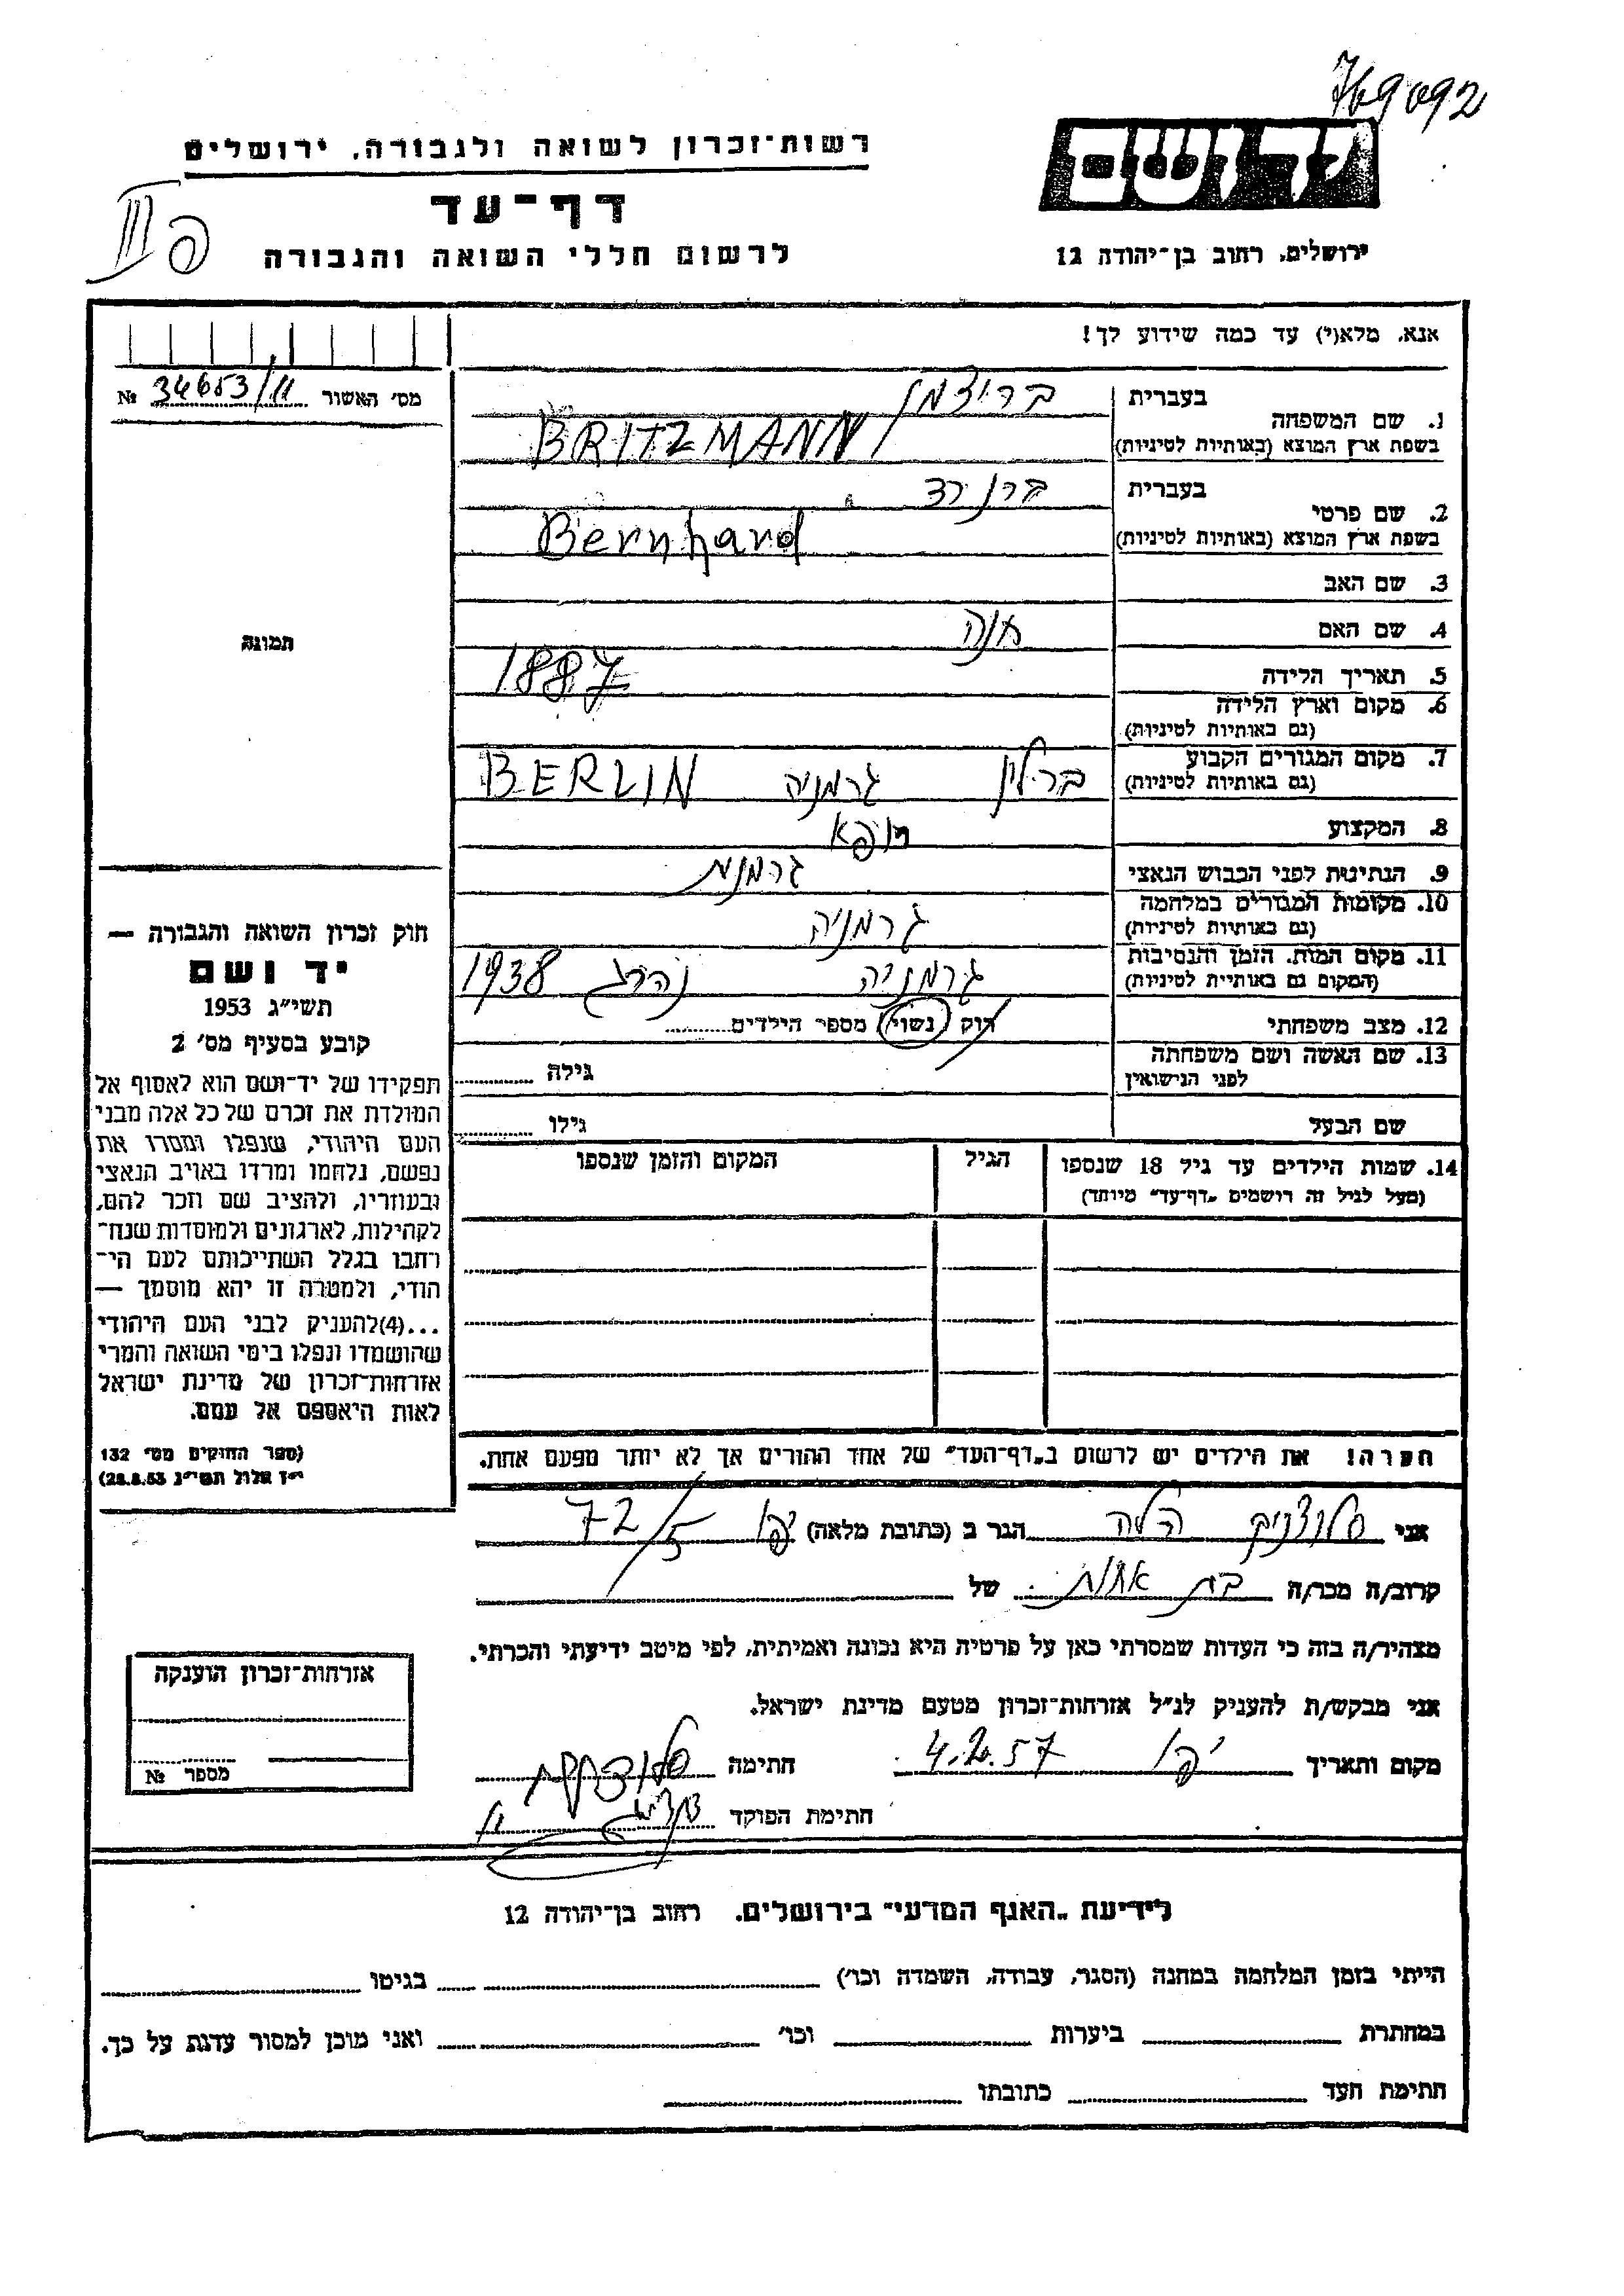 769092
רשות־זכרון לשואה ולגבורה, ירושלים
יד ושם
דף־עד
לרשום חללי השואה והגבורה
ירושלים, רחוב בן־יהודה 12
III פ
אנא, מלא(י) עד כמה שידוע לך!
מס׳ האשור 34653/11 №
בעברית ברוצמן
1. שם המשפחה
בשפת ארץ המוצא (באותיות לטיניות) BRITZMANN
בעברית ברנרד
2. שם פרטי
בשפת ארץ המוצא (באותיות לטיניות) Bernhard
3. שם האב
4. שם האם אנה
5. תאריך הלידה 1887
6. מקום וארץ הלידה
(גם באותיות לטיניות)
7. מקום המגורים הקבוע
(גם באותיות לטיניות) ברלין גרמניה BERLIN
8. המקצוע רופא
9. הנתינות לפני הכבוש הנאצי גרמנית
10. מקומות המגורים במלחמה
(גם באותיות לטיניות) גרמניה
11. מקום המות, הזמן והנסיבות
(המקום גם באותיית לטיניות) גרמניה נהרג 1938
12. מצב משפחתי רוק (נשוי) מספר הילדים
13. שם האשה ושם משפחתה
לפני הנישואין גילה
שם הבעל גילו
14. שמות הילדים עד גיל 18 שנספו הגיל המקום והזמן שנספו
(מעל לגיל זה רושמים „דף־עד” מיוחד)
תמונה
חוק זכרון השואה והגבורה —
יד ושם
תשי״ג 1953
קובע בסעיף מס׳ 2
תפקידו של יד־ושם הוא לאסוף אל
המולדת את זכרם של כל אלה מבני
העם היהודי, שנפלו ומסרו את
נפשם, נלחמו ומרדו באויב הנאצי
ובעוזריו, ולהציב שם וזכר להם,
לקהילות, לארגונים ולמוסדות שנח־
רחבו בגלל השתייכותם לעם הי־
הודי, ולמטרה זו יהא מוסמך —
...(4)להעניק לבני העם היהודי
שהושמדו ונפלו בימי השואה והמרי
אזרחות־זכרון של מדינת ישראל
לאות היאספם אל עמם.
(ספר החוקים מס׳ 132
י״ז אלול תשי״ג 28.8.53)
הערה! את הילדים יש לרשום ב„דף־העד” של אחד ההורים אך לא יותר מפעם אחת.
אני הלה הגר ב (כתובת מלאה) יפו 72/5
קרוב/ה מכר/ה בת אחות של
מצהיר/ה בזה כי העדות שמסרתי כאן על פרטיה היא נכונה ואמיתית, לפי מיטב ידיעתי והכרתי.
אני מבקש/ת להעניק לנ״ל אזרחות־זכרון מטעם מדינת ישראל.
מקום ותאריך יפו 4.2.57 חתימה
חתימת הפוקד
אזרחות־זכרון הוענקה
מספר №
לידיעת „האגף המדעי” בירושלים, רחוב בן־יהודה 12
הייתי בזמן המלחמה במחנה (הסגר, עבודה, השמדה וכו׳) בגיטו
במחתרת ביערות וכו׳ ואני מוכן למסור עדות על כך.
חתימת העד כתובתו